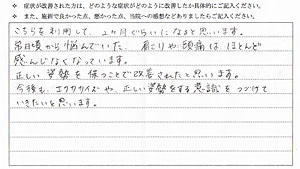 ※ 症状が改善された方は、どのような症状がどのように改善したか具体的にご記入ください。
※ また、施術で良かった点、悪かった点、当院への感想などありましたらご記入ください。
こちらを利用して、2ヶ月ぐらいになると思います。
常日頃から悩んでいた、肩こりや頭痛はほとんど
感んじなくなっています。
正しい姿勢を保つことで改善されたと思います。
今後も、エクササイズや、正しい姿勢をする意識をつづけて
いきたいと思います。